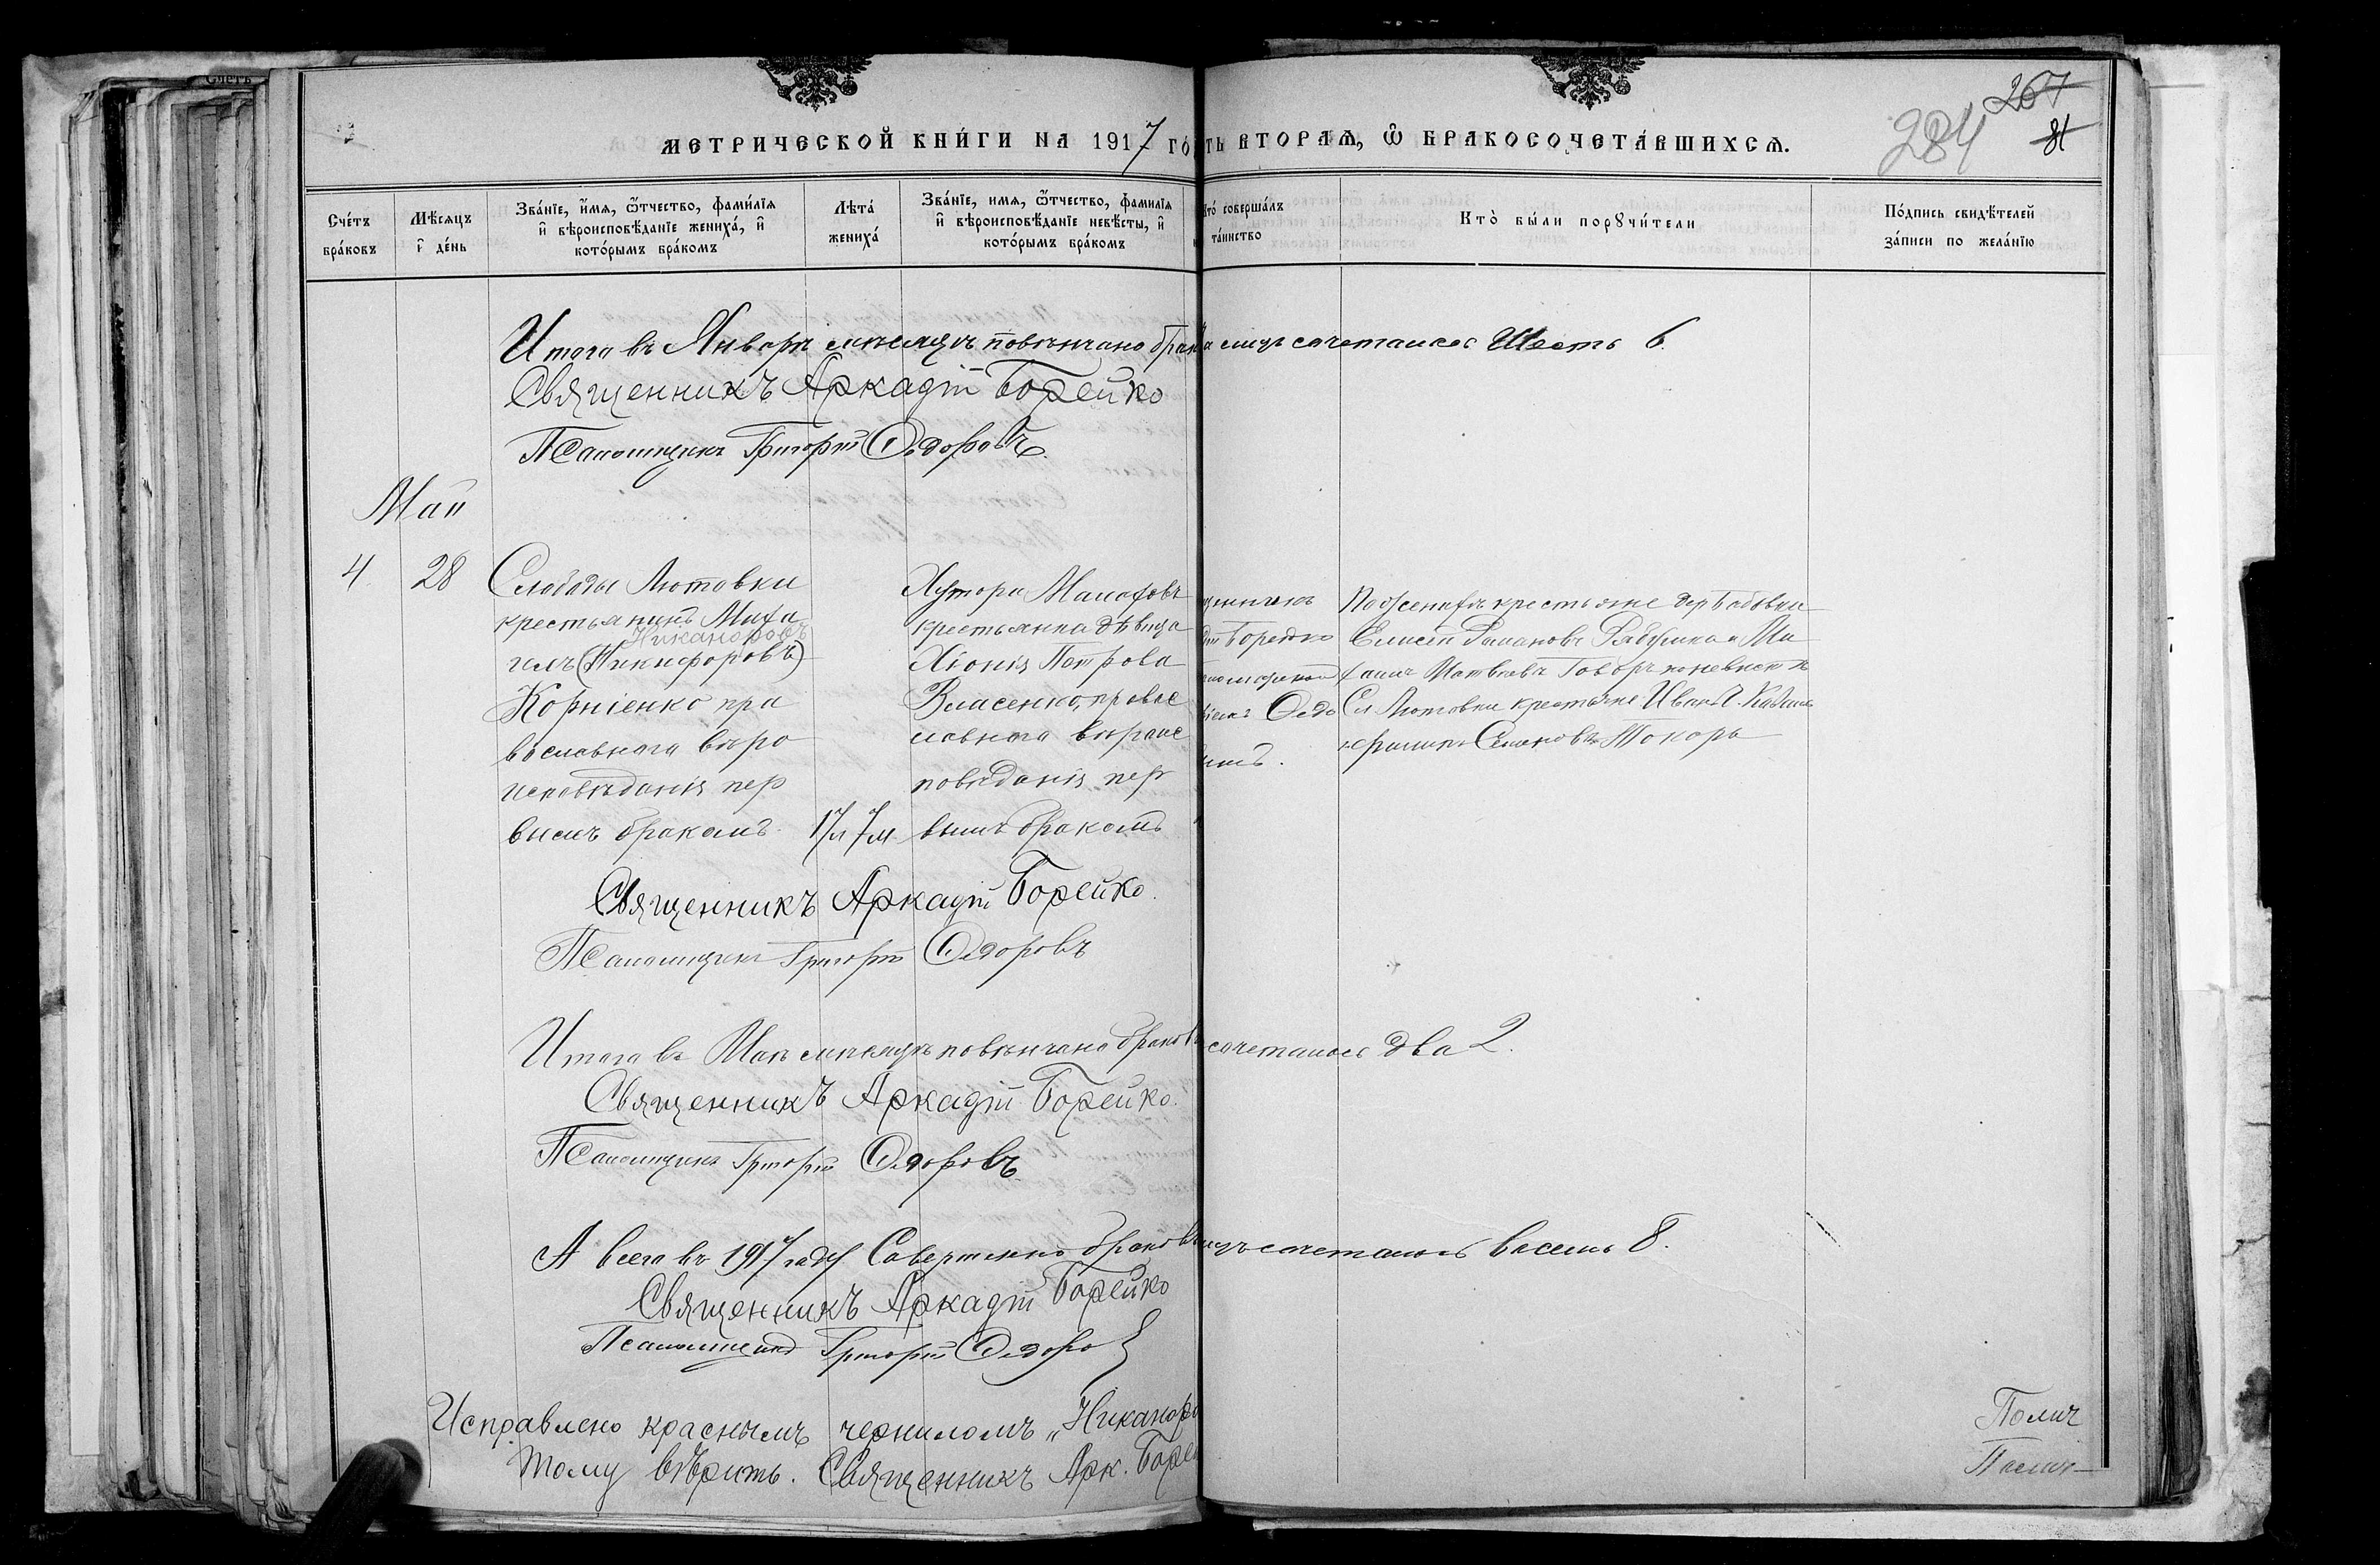 МЕТРИЧЕСКОЙ КНИ́ГИ НА 1917 ГО́
ТЬ ВТОРАѦ, Ѿ БРАКОСОЧЕТА́ВШИХСѦ.
267
284
81
Сче́тъ бра́ковъ
Мѣ́сѧцъ и҆ де́нь
Зва́нїе, и҆́мѧ, ѻ҆́тчество, фами́лїѧ и҆ вѣроисповѣ́данїе жениха́, и҆ кото́рымъ бра́комъ
Лѣта́ жениха́
Зва́нїе, имѧ, ѻ҆́тчество, фами́лїѧ и҆ вѣроисповѣ́данїе невѣ́сты, и҆ кото́рымъ бра́комъ
Кто́ соверша́лъ та́инство
Кто̀ бы́ли порꙋчи́тели
По́дпись свидѣ́телей за́писи по жела́нїю
Итого въ Январѣ мѣсяцѣ повѣнчано брак
а лицъ сочеталось Шесть 6.
Священникъ Аркадій Борейко
Псаломщикъ Григорій Ѳедоровъ.
Май
4. 28
Слободы Лютовки
крестьянинъ Миха
Никаноровъ
илъ (Никифоровъ)
Корніенко пра
вославнаго вѣро
исповѣданія пер
вымъ бракомъ.
17 л 7 м
Хутора
крестьянка дѣвица
Хіонія Петрова
Власенко, правос
лавнаго вѣроис
повѣданія пер
вымъ бракомъ
щенникъ
дій Борейко
Ѳедо
вымъ.
По женихѣ крестьяне дер
Елисей Романовъ и Ми
хаилъ Матвѣевъ Говоръ по невѣстѣ
Сл Лютовки крестьяне Иванъ
Семеновъ Токарь
Священникъ Аркадій Борейко.
Псаломщикъ Григорій Ѳедоровъ
Итого въ Маѣ мѣсяцѣ повѣнчано браковъ
сочеталось два 2.
Священникъ Аркадій Борейко.
Псаломщикъ Григорій Ѳедоровъ.
А всего въ 1917 году Совершено браковъ
лицъ сочеталось восемь 8.
Священникъ Аркадій Борейко
Псаломщикъ Григорій Ѳедоровъ
Исправлено краснымъ черниломъ „Никаноро
тому вѣрить. Священникъ Арк. Боре